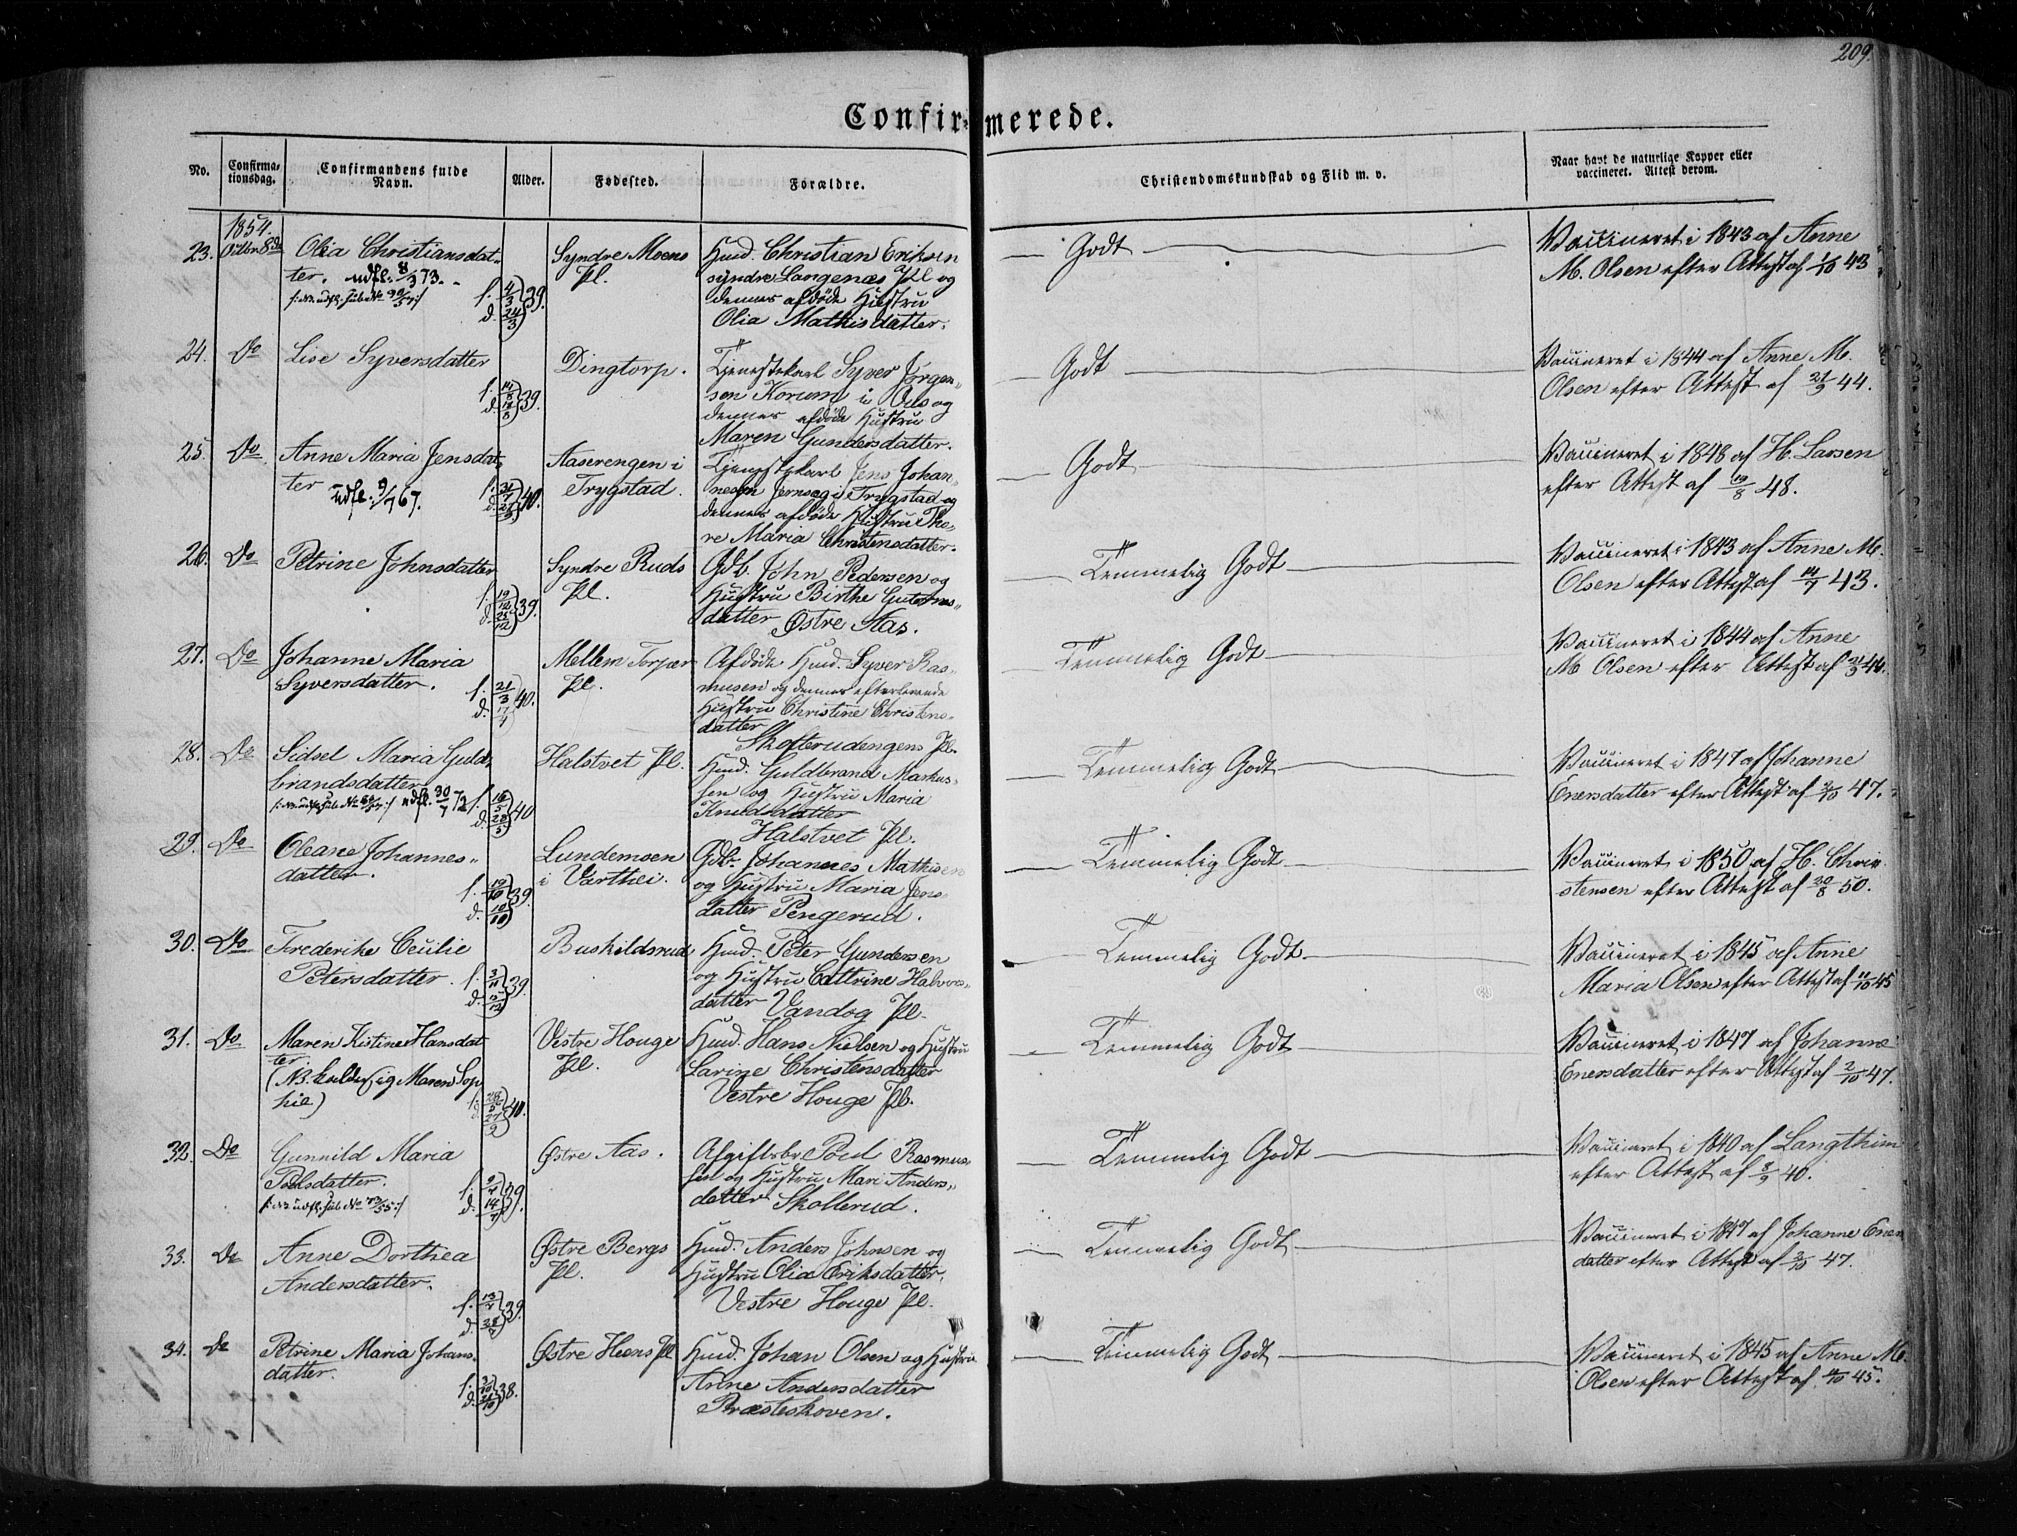 209.
Confirmerede.
No.
Confirma-
tionsdag.
Confirmandens fulde
Navn.
Alder.
Fødested.
Forældre.
Christendomskundskab og Flid m. v.
Naar havt de naturlige Kopper eller
vaccineret. Attest derom.
1854.
23. Octbr 8de
Olia Christiansdat-
ter. udfl. 8/3 73.
f. 4/3 d. 24/3 39.
Syndre Moens
Pl.
Huusm. Christian Eriksen
syndre Langenæs Pl og
dennes afdøde Hustru
Olia Mathisdatter.
Godt
Vaccineret i 1843 af Anne
M. Olsen efter Attest af 1/10 43
24. Do
Lise Syversdatter
f. 14/8 d. 39.
Dingtorp.
Tjenestekarl Syver Jørgen-
sen Korum i Ous og
dennes afdøde Hustru
Maren Gundersdatter.
Godt
Vaccineret i 1844 af Anne M.
Olsen efter Attest af 21/9 44.
25. Do
Anne Maria Jensdat-
ter
udfl. 9/7 67.
40.
Aaserengen i
Trygstad.
Tjenestekarl Jens Johan-
nesen Jernsæg i Trygstad og
dennes afdøde Hustru The-
re Maria Christensdatter.
Godt
Vaccineret i 1848 af H. Larsen
efter Attest af 19/8 48.
26. Do
Petrine Johnsdatter
39.
Syndre Ruds
Pl.
Gdb. John Pedersen og
Hustru Birthe Gutorms-
datter Østre Aas.
Temmelig Godt
Vaccineret i 1843 af Anne M.
Olsen efter Attest af 14/7 43.
27. Do
Johanne Maria
Syversdatter.
f. 21/3 d. 40.
Mellem Torper
Pl.
Afdøde Huusm. Syver Ras-
musen og dennes efterlevende
Hustru Christine Christens-
datter
Skofterudengens Pl.
Temmelig Godt
Vaccineret i 1844 af Anne
M Olsen efter Attest af 21/9 44.
28. Do
Sidsel Maria Guld-
brandsdatter
udfl. 30/7 72
f. 16/5 d. 28/5 40
Halstvet Pl.
Huusm. Guldbrand Markus-
sen og Hustru Maria
Knudsdatter
Halstvet Pl.
Temmelig Godt
Vaccineret i 1847 af Johanne
Enersdatter efter Attest af 2/10 47.
29. Do
Oleane Johannes-
datter.
f. 10/10 d. 39.
Lundemoen
i Varthei.
Gdb. Johannes Mathisen
og Hustru Maria Jens-
datter Pengerud.
Temmelig Godt
Vaccineret i 1850 af H. Chri-
stensen efter Attest af 20/8 50.
30. Do
Frederike Cecilie
Petersdatter.
f. 3/11 d. 39.
Buskildsrud
Huusm. Peter Gundersen
og Hustru Cathrine Halvors-
datter Vandog Pl.
Temmelig Godt
Vaccineret i 1845 af Anne
Maria Olsen efter Attest af 11/10 45
31. Do
Maren Kistine Hansdat-
ter
(NB. kalder sig Maren Sop-
hie)
40.
Vestre Houge
Pl.
Huusm. Hans Nielsen og Hustru
Larine Christensdatter
Vestre Houge Pl.
Temmelig Godt
Vaccineret i 1847 af Johanne
Enersdatter efter Attest af 2/10 47.
32. Do
Gunnild Maria
Polsdatter.
39.
Østre Aas.
Afgiftsbr. Poul Rasmus-
sen og Hustru Mari Anders-
datter Skollerud.
Temmelig Godt
Vaccineret i 1840 af Langthim
efter Attest af 8/9 40.
33. Do
Anne Dorthea
Andersdatter.
39.
Østre Bergs
Pl.
Huusm. Anders Johnsen og
Hustru Olia Eriksdatter,
Vestre Houge Pl.
Temmelig Godt
Vaccineret i 1847 af Johanne Eners
datter efter Attest af 2/10 47.
34. Do
Petrine Maria Johans-
datter.
38.
Østre Heens Pl
Huusm. Johan Olsen og Hustru
Anne Andersdatter
Præsteskoven.
Temmelig Godt
Vaccineret i 1845 af Anne M.
Olsen efter Attest af 11/10 45.